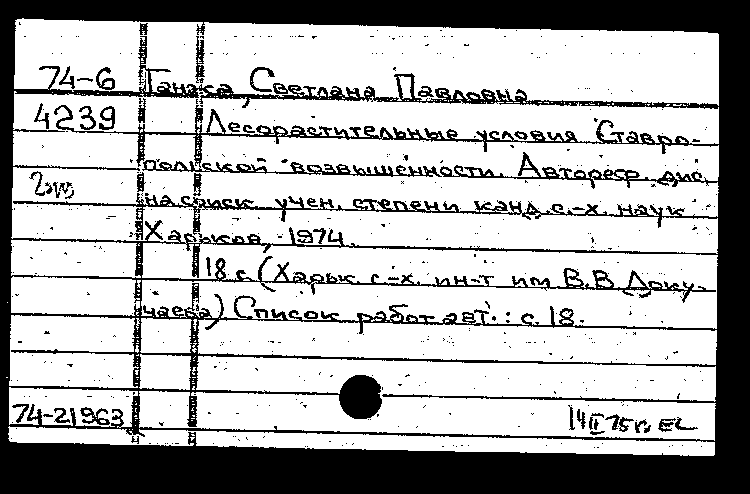 74-6 Танака, Светлана Павловна
4239 Лесорастительные условия Ставро-
польской возвышенности. Автореф. дис.
на соиск. учен. степени канд. с.-х. наук
Харьков, 1974.
18 с. (Харьк. с.-х. ин-т им В.В Доку-
чаева) Список работ авт.: с. 18.
74-21963 14 II 75 г.